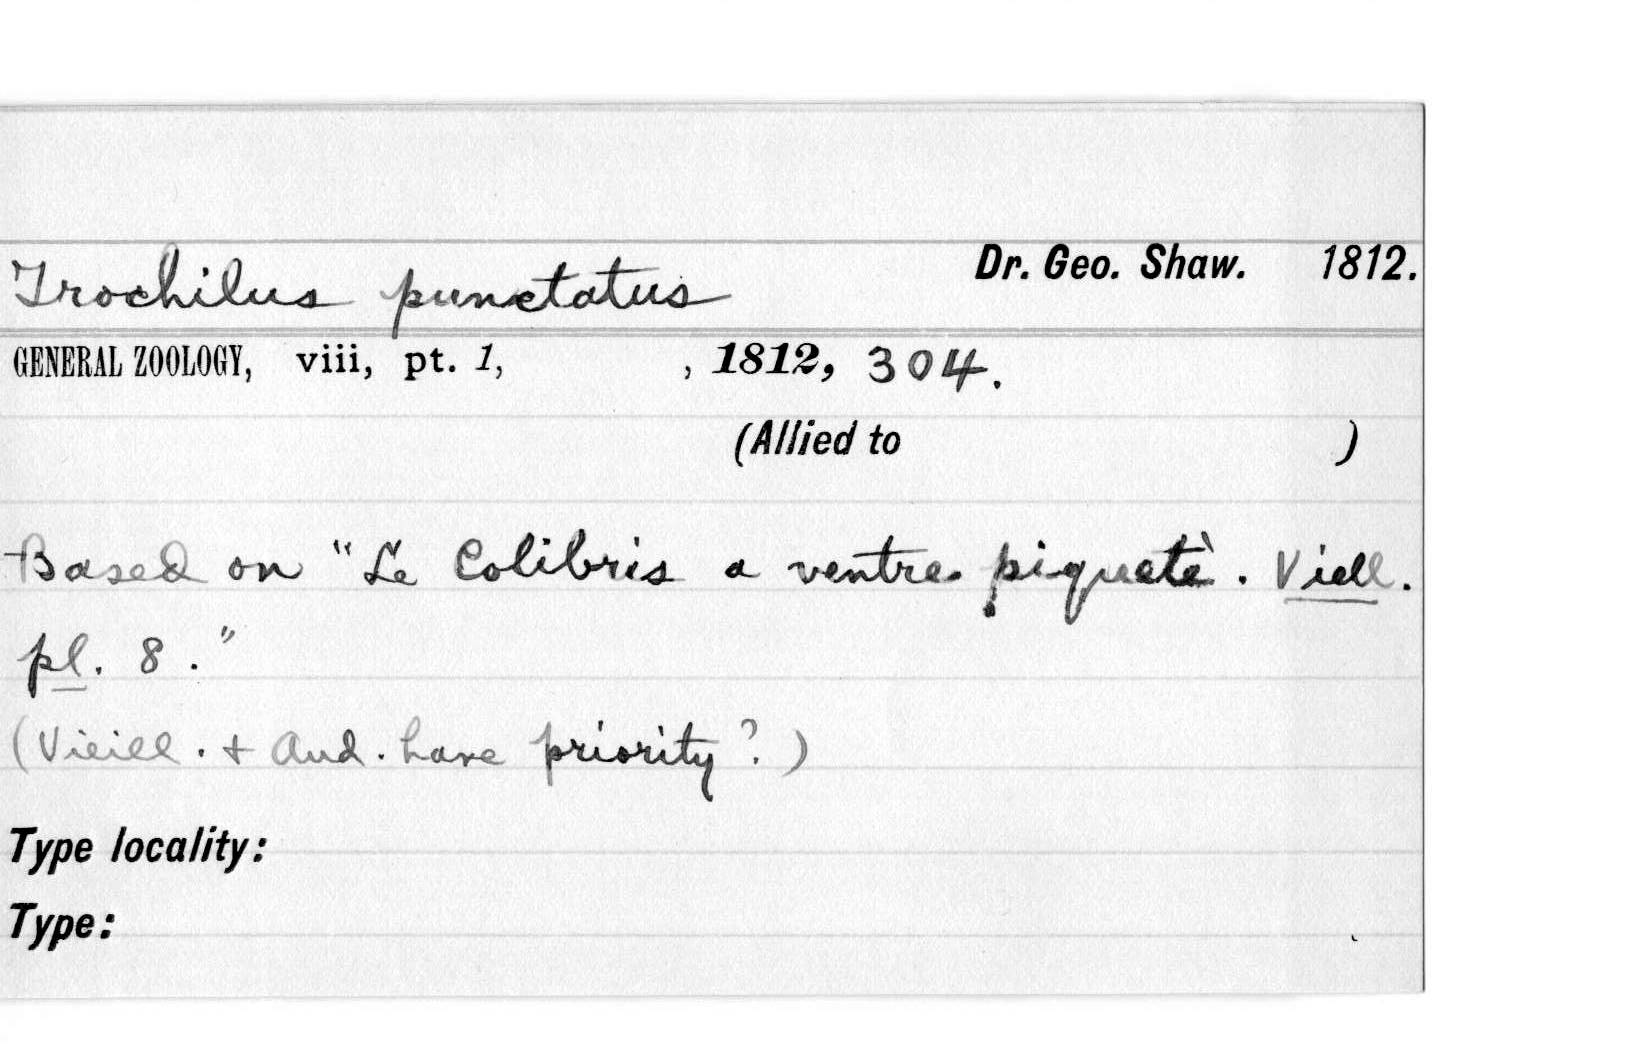 Trochilus punctatus Dr. Geo. Shaw. 1812.
GENERAL ZOOLOGY, viii, pt. 1, , 1812, 304.
(Allied to )
Based on "Le Colibris a ventre piquetè. Viell.
pl. 8."
(Vieill. + Aud. have priority?)
Type locality:
Type: